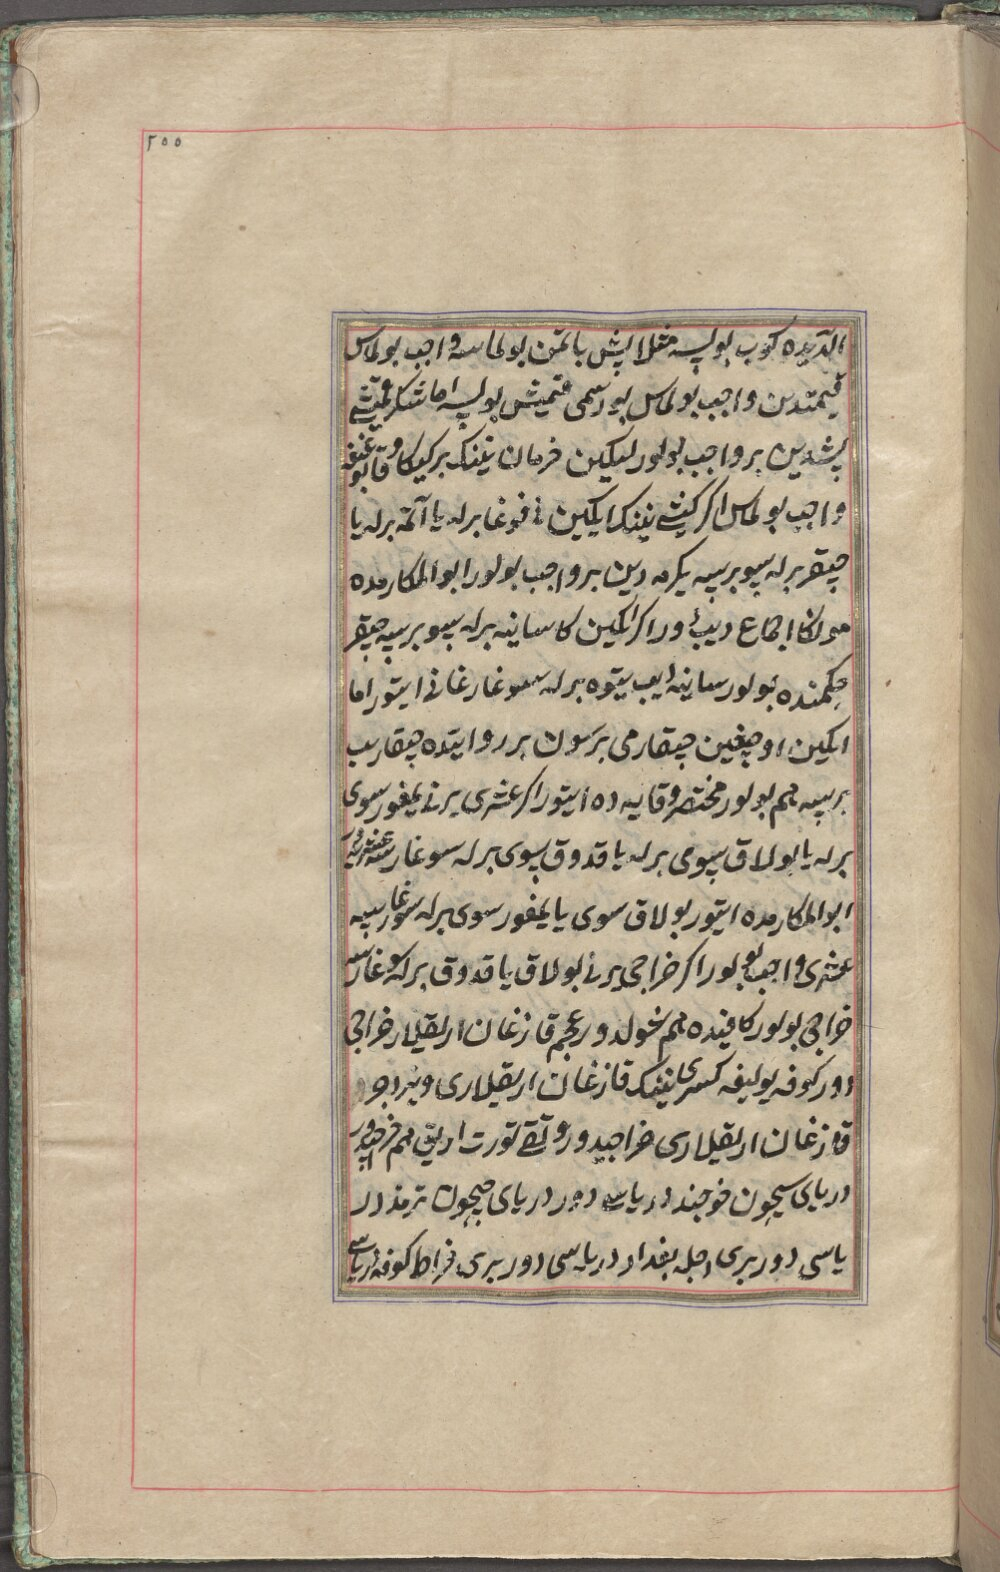 ۲۵۵
الدیده کوب بولسه مثلا بیش باتمن بولماسه واجب بولماس
قیمتدین واجب بولماس بو رسمی قمیش بولسه اما شکر قمیشی
بشدین بر واجب بولور لیکین فرمان نینک برکیکا و قابوغیغه
واجب بولماس اکر کیشی نینک ایکین نی قوغا برله یا آلة برله یا
چیقر برله سو برسه یکرمه دین بر واجب بولور ابو المکارمده
مولانا اجماع دیب دور اکر ایکین کا سانیه برله سو برسه چیقر
حکمنده بولور سانیه ایب تیوه برله سوغارغانی ایتور اما
ایکین اوچغین چیقارمی برسون بر روایتده چیقاریب
برسه هم بولور مختصر وقایه ده ایتور اکر عشری یرنی یمغور سوی
برله یا بولاق سوی برله یا قدوق سوی برله سوغارسه عشریدور
ابو المکارمده ایتور بولاق سوی یا یمغور سوی برله سوغارسه
عشری واجب بولور اکر خراجی یرنی بولاق یا قدوق برله سوغارسه
خراجی بولور کافیده هم شولدور عجم قازغان اریقلار خراجی
دور کوفه یولیغه کسری نینک قازغان اریقلاری و یزدجرد
قازغان اریقلاری خراجیدور و تقی تورت اریق هم خراجیدور
دریای سیحون خوجند دریاسی دور دریای جیحون ترمذ در
یاسی دور بری دجله بغداد دریاسی دور بری فراط کوفه دریاسی